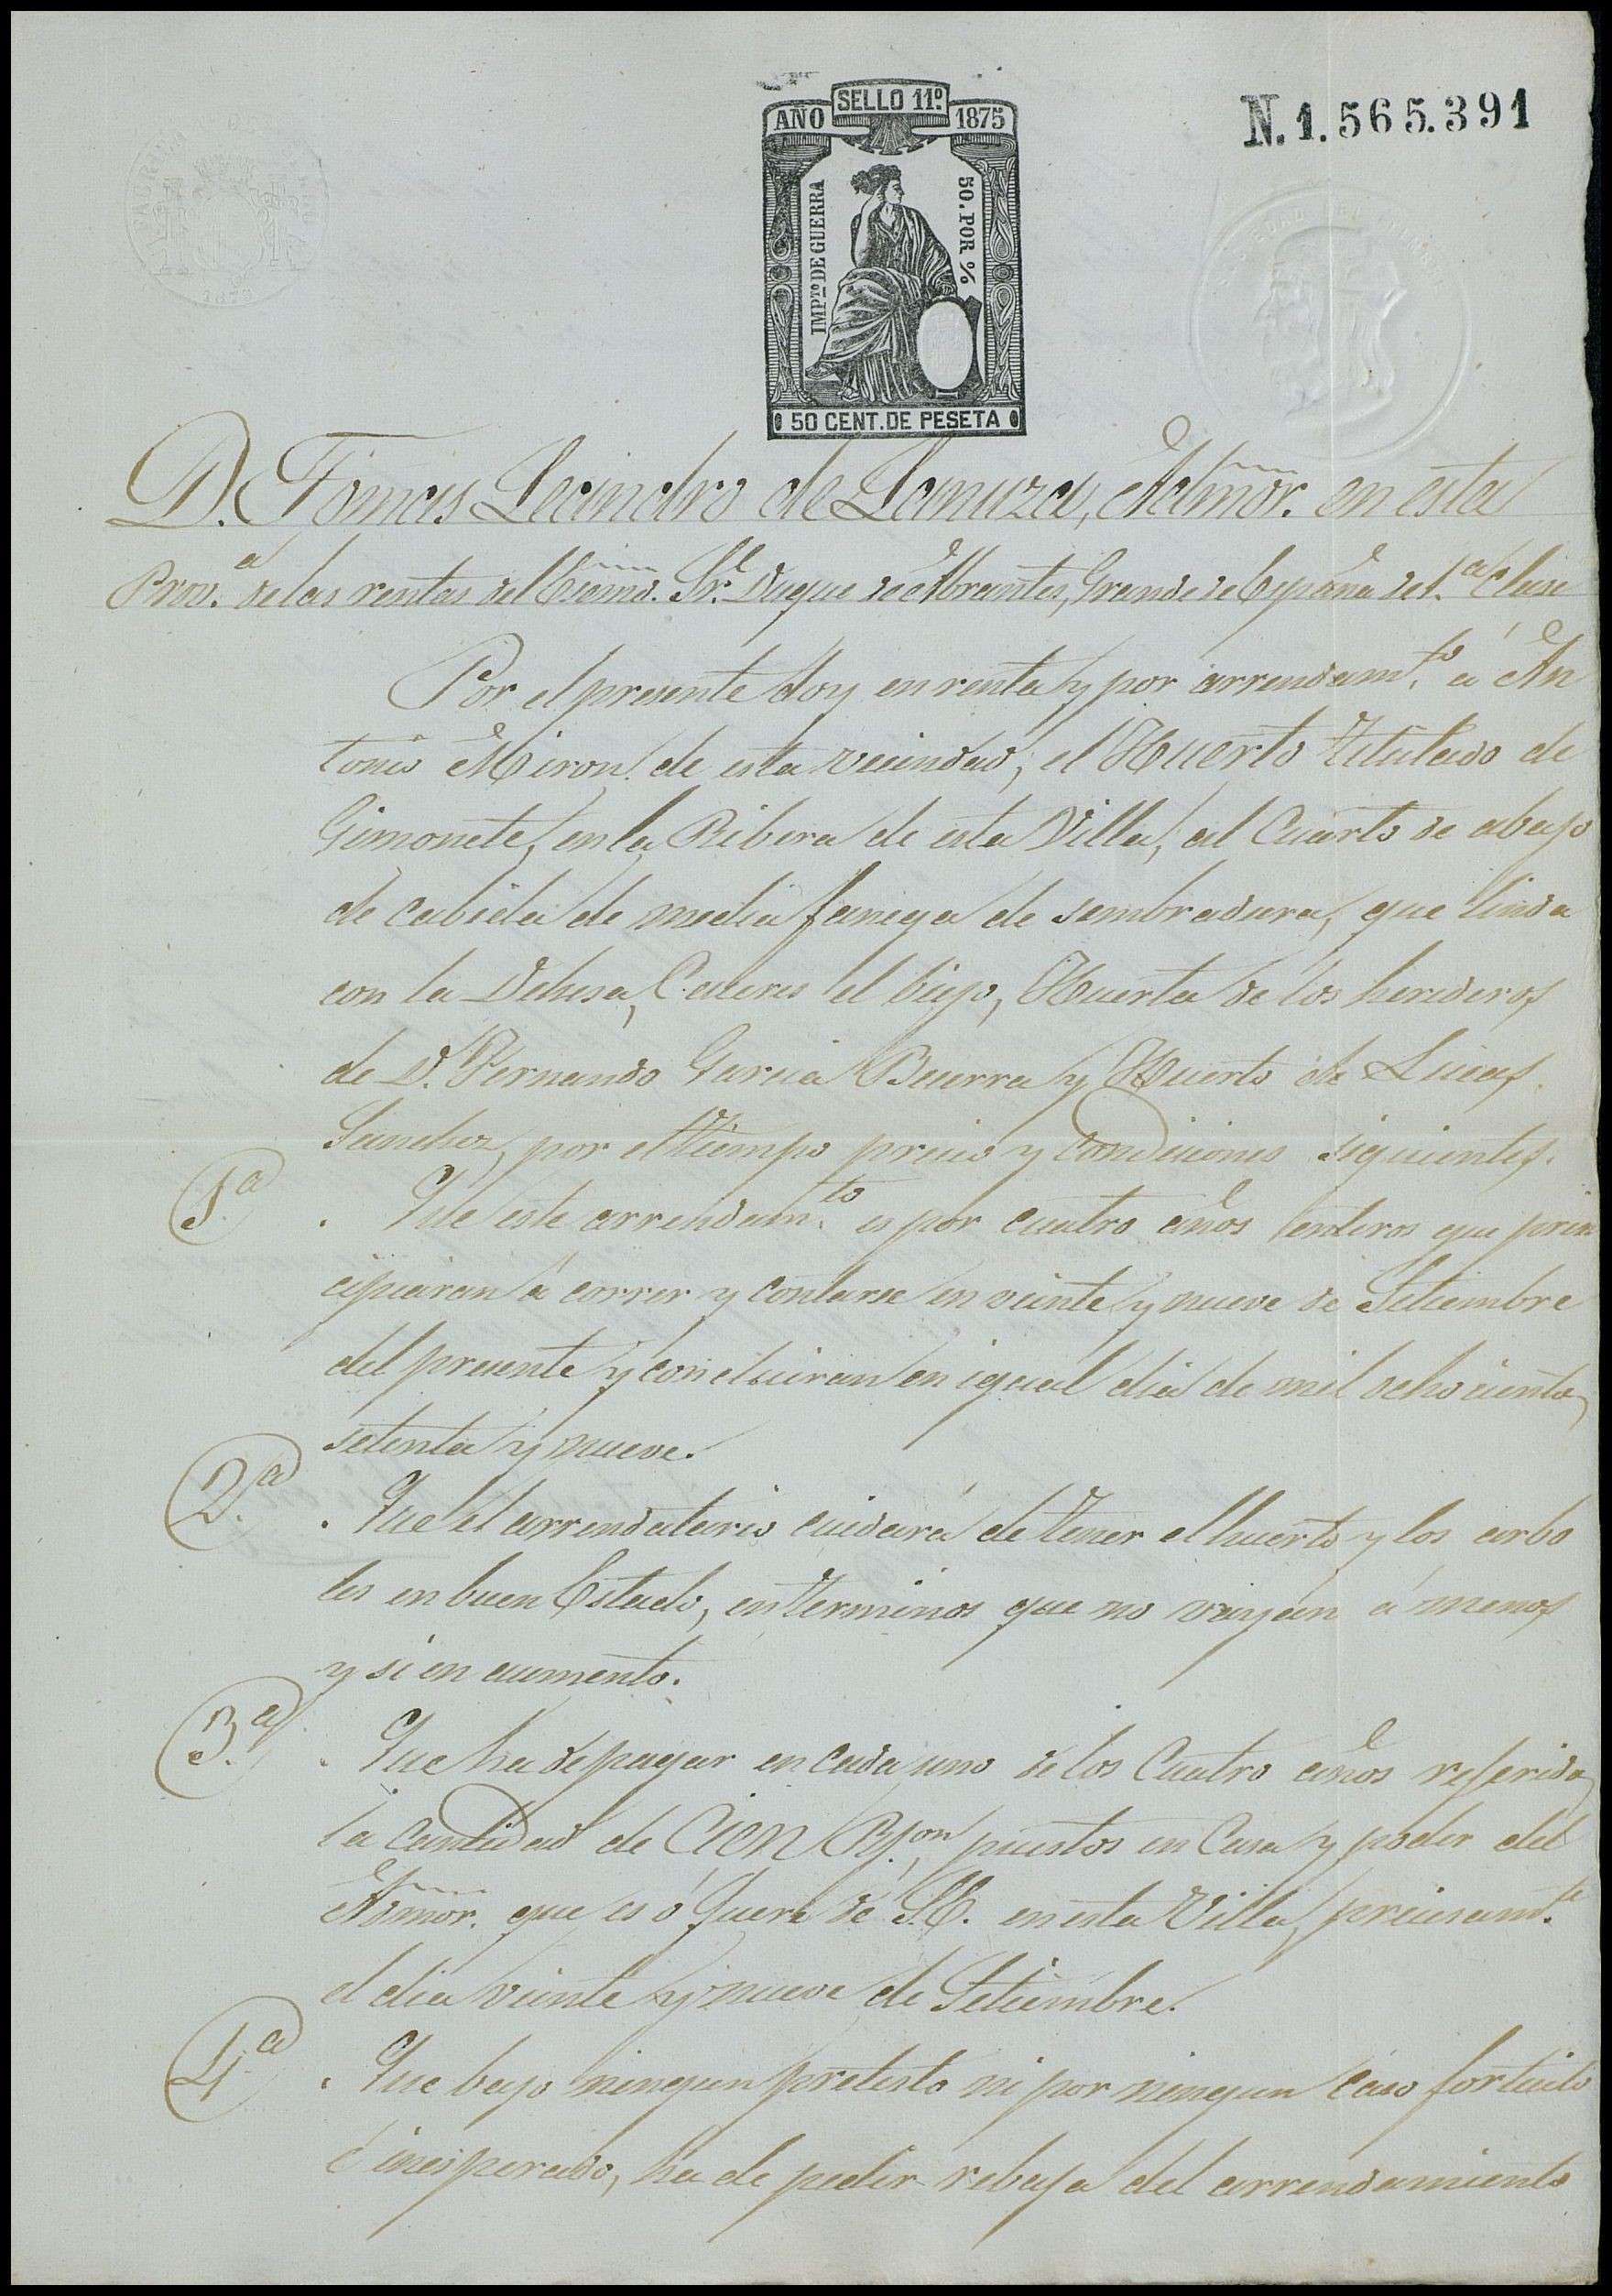 SELLO 11º
AÑO 1875
N. 1.565.391
IMPTO DE GUERRA
50. POR %
50 CENT. DE PESETA
D. Tomas Leandro de Lanuza, Admor. en esta
Prova. de las rentas del Excmo. Sr. Duque de Abrantes, Grande de España de 1.ª Clase
Por el presente doy en renta y por arrendamto. á An
tonio Miron de esta vecindad, el Huerto titulado de
Gimonete, en la Ribera de esta Villa, al Cuarto de abajo
de cabida de media fanega de sembradura, que linda
con la Dehesa, Caceres el biejo, Huerta de los herederos
de D. Fernando Garcia Becerra y Huerto de Lucas
Sanchez, por el tiempo precio y condiciones siguientes.
1.ª . Que este arrendamto. es por cuatro años enteros que prin
cipiaran á correr y contarse en veinte y nueve de Setiembre
del presente y concluiran en igual dia de mil ochocientos
setenta y nueve.
2.ª . Que el arrendatario cuidará de tener el huerto y los arbo
les en buen Estado, en terminos que no vayan á menos
y si en aumento.
3.ª . Que ha de pagar en cada uno de los Cuatro años referidos
la cantidad de Cien Rs. on puestos en Casa y poder del
Admor. que es ó fuere de S.E. en esta Villa, precisamte.
el dia veinte y nueve de Setiembre.
4.ª . Que bajo ningun pretesto ni por ningun caso fortuito
é inesperado, ha de pedir rebaja del arrendamiento